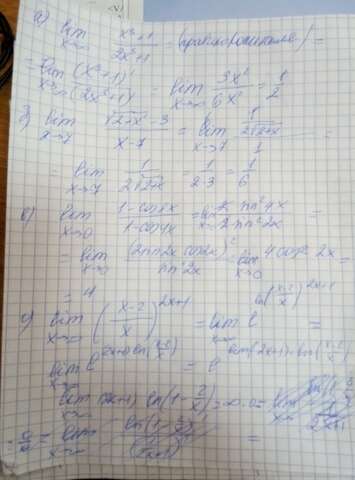 а) lim x→∞ (x³+1)/(2x³+1) = (правило Лопиталя) =
= lim x→∞ (x³+1)'/(2x³+1)' = lim x→∞ 3x²/6x² = 1/2
б) lim x→7 (√(2+x) - 3)/(x-7) = lim x→7 (1/(2√(2+x)))/1 =
= lim x→7 1/(2√(2+x)) = 1/(2·3) = 1/6
в) lim x→0 (1-cos8x)/(1-cos4x) = lim x→0 2 sin²4x/(2 sin²2x) =
= lim x→0 (2sin2x cos2x)²/sin²2x = lim x→0 4cos²2x =
= 4
lim x→∞ ((x-2)/x)^(2x+1) = lim e^(ln((x-2)/x)^(2x+1)) =
lim x→∞ e^((2x+1)ln((x-2)/x)) = e^(lim(2x+1)·ln((x-2)/x))
lim x→∞ (2x+1) ln(1-2/x) = ∞·0 =
= lim x→∞ =